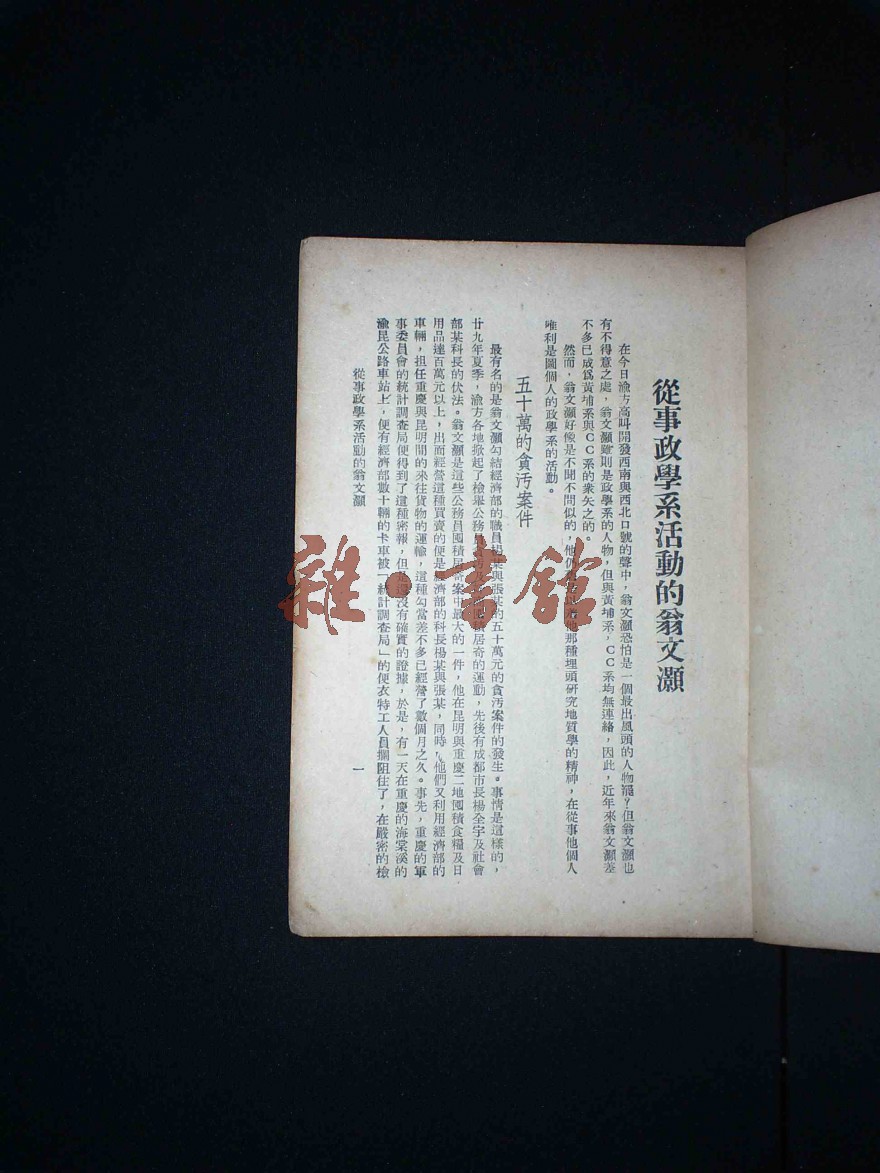 從事政學系活動的翁文灝
在今日渝方高叫開發西南與西北口號的聲中，翁文灝恐怕是一個最出風頭的人物罷？但翁文灝也
有不得意之處，翁文灝雖則是政學系的人物，但與黃埔系，ＣＣ系均無連絡，因此，近年來翁文灝差
不多已成爲黃埔系與ＣＣ系的衆矢之的。
然而，翁文灝好像是不聞不問似的，他仍他那種埋頭研究地質學的精神，在從事他個人
唯利是圖個人的政學系的活動。
五十萬的貪汚案件
最有名的是翁文灝勾結經濟部的職員楊某與張某的五十萬元的貪汚案件的發生。事情是這樣的，
廿九年夏季，渝方各地掀起了檢舉公務員積居奇的運動，先後有成都市長楊全宇及社會
部某科長的伏法。翁文灝是這些公務員囤積居奇案中最大的一件，他在昆明與重慶二地囤積食糧及日
用品達百萬元以上，出而經營這種買賣的便是經濟部的科長楊某與張某，同時，他們又利用經濟部的
車輛，担任重慶與昆明間的來往貨物的運輸，這種勾當差不多已經營了數個月之久。事先，重慶的軍
事委員會的統計調查局便得到了這種密報，但是還沒有確實的證據，於是，有一天在重慶的海棠溪的
渝昆公路車站上，便有經濟部數十輛的卡車被「統計調查局」的便衣特工人員攔阻住了，在嚴密的檢
從事政學系活動的翁文灝
一
雜書館